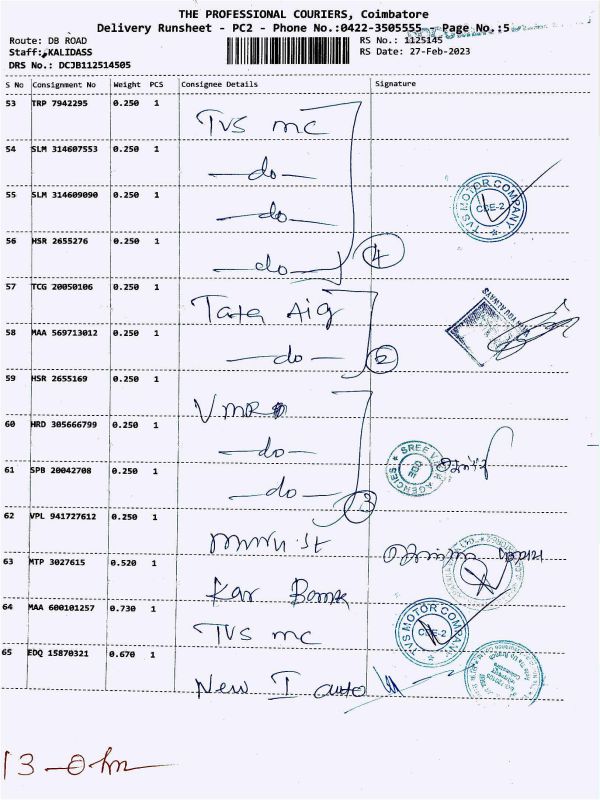 THE PROFESSIONAL COURIERS, Coimbatore
Delivery Runsheet - PC2 - Phone No.:0422-3505555 - Page No.:5
Route: DB ROAD
RS No.: 1125145
Staff: KALIDASS
RS Date: 27-Feb-2023
DRS No.: DCJB112514505
S No Consignment No Weight PCS Consignee Details Signature
53 TRP 7942295 0.250 1 TVS mc
54 SLM 314607553 0.250 1 -do-
TVS MOTOR COMPANY
CBE-2
55 SLM 314609090 0.250 1 -do-
56 HSR 2655276 0.250 1 -do- 4
57 TCG 20050106 0.250 1 Tata Aig
58 MAA 569713012 0.250 1 -do- 2
59 HSR 2655169 0.250 1 VMR
60 HRD 305666799 0.250 1 -do-
SREE
AGENCIES
61 SPB 20042708 0.250 1 -do- 3
62 VPL 941727612 0.250 1
63 MTP 3027615 0.520 1 Kar Bank
64 MAA 600101257 0.730 1 TVS mc
TVS MOTOR COMPANY
CBE-2
65 EDQ 15870321 0.670 1 New I auto
13